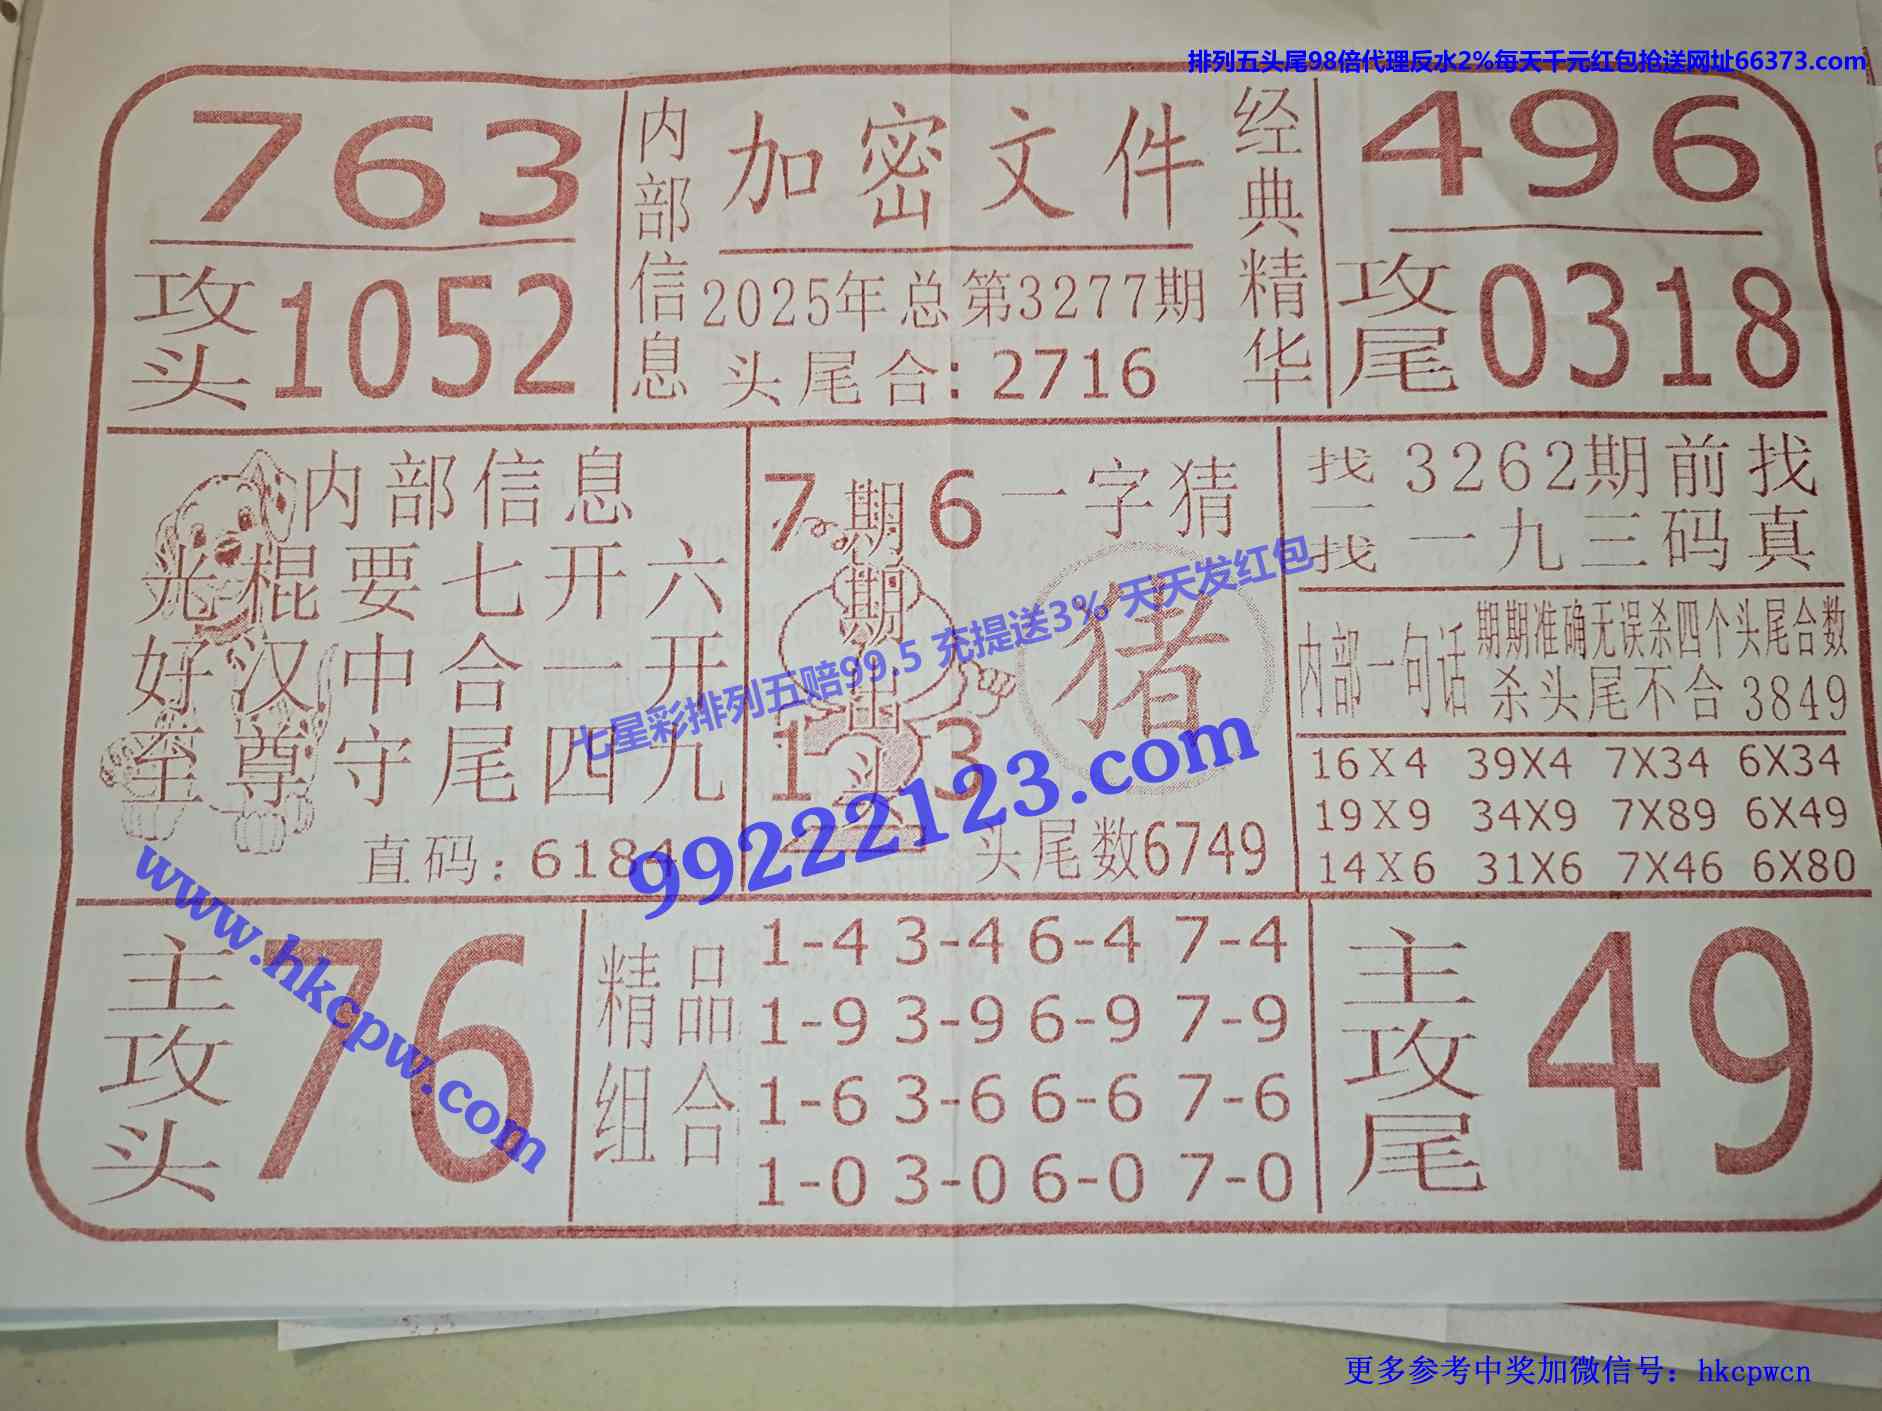 排列五头尾98倍代理反水2%每天千元红包抢送网址66373.com
763
攻头 1052
内部信息
加密文件
2025年总第3277期
头尾合：2716
经典精华
496
攻尾 0318
内部信息
光棍要七开六
好汉中合一开
至尊守尾四九
直码：6184
7 期 6 一字猜
期
出
猪
1 头 3
头尾数6749
找一找
3262期前找
一九三码真
内部一句话
期期准确无误杀四个头尾合数
杀头尾不合3849
16X4 39X4 7X34 6X34
19X9 34X9 7X89 6X49
14X6 31X6 7X46 6X80
七星彩排列五赔99.5 充提送3% 天天发红包
99222123.com
www.hkcpw.com
主攻头
76
精品组合
1-4 3-4 6-4 7-4
1-9 3-9 6-9 7-9
1-6 3-6 6-6 7-6
1-0 3-0 6-0 7-0
主攻尾
49
更多参考中奖加微信号：hkcpwcn